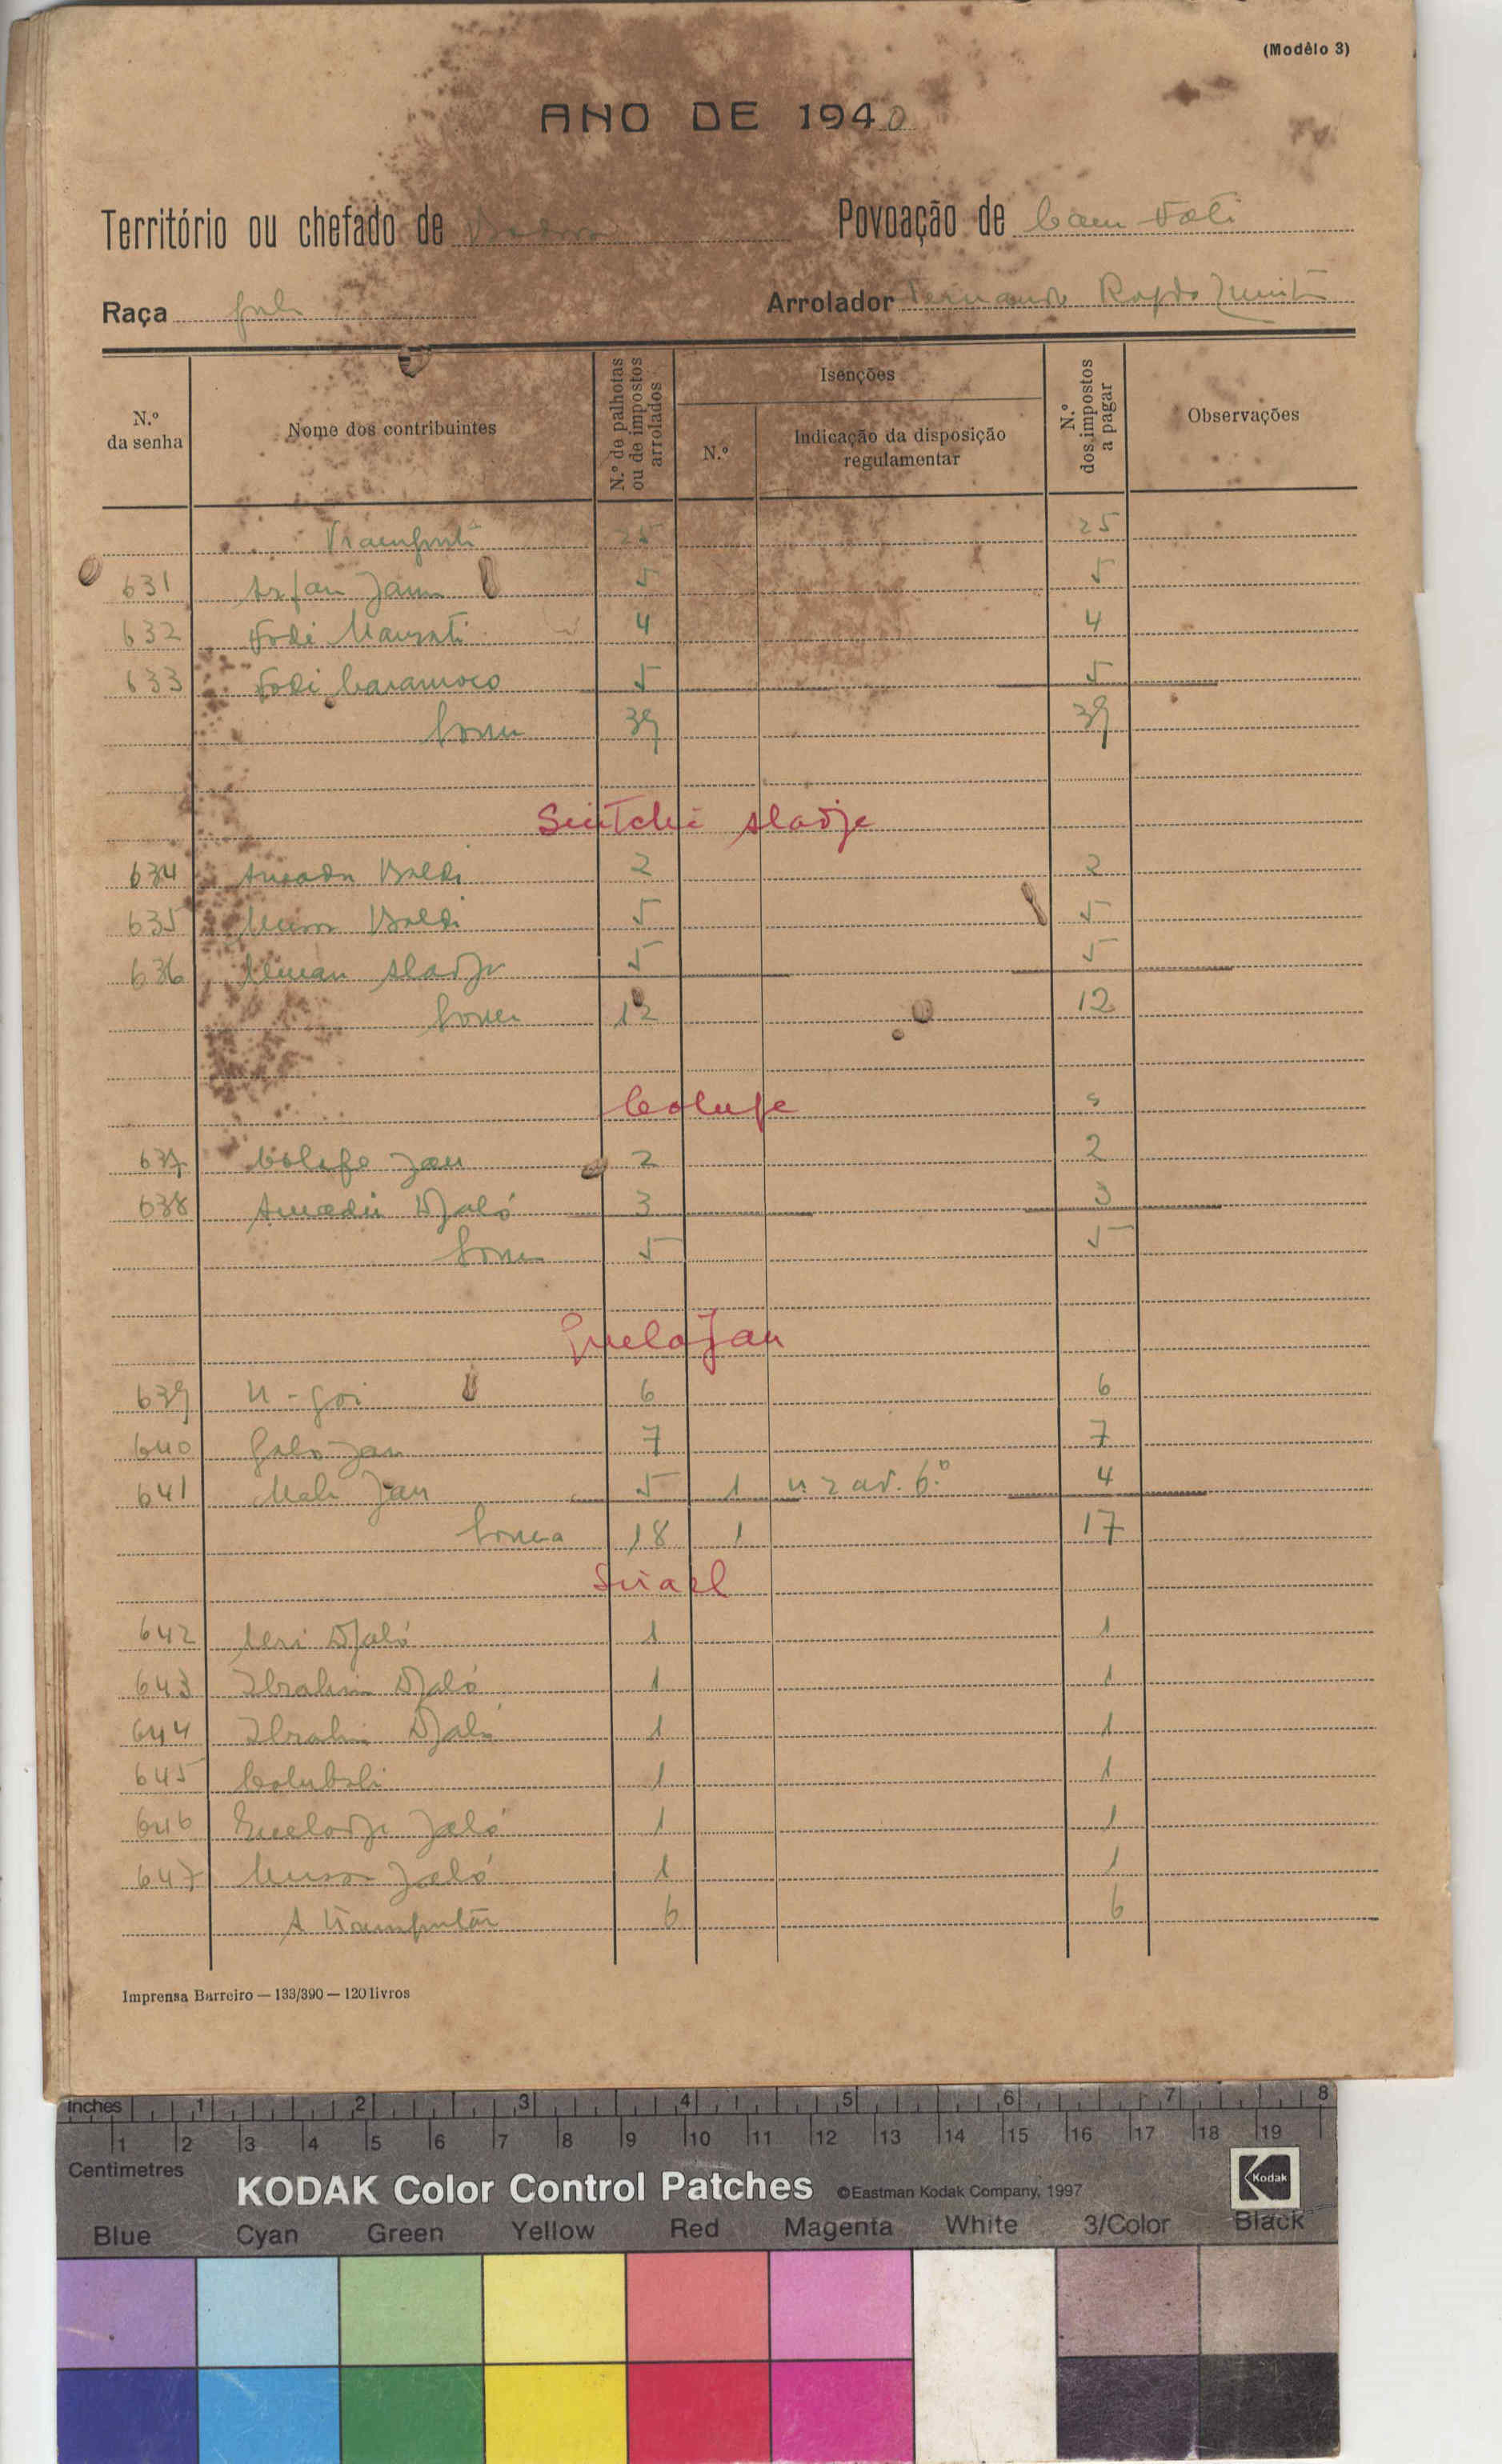 (Modêlo 3)
ANO DE 1940
Território ou chefado de
Povoação de Cam Fati
Raça fula
Arrolador Fernando
N.º da senha
Nome dos contribuintes
N.º de palhotas ou de impostos arrolados
Isenções
N.º
Indicação da disposição regulamentar
N.º dos impostos a pagar
Observações
25 25
631 5 5
632 Fodé 4 4
633 Fodé Caramoco 5 5
Soma 39 39
Sintchã Aladje
634 Amadu Baldi 2 2
635 Mussa Baldi 5 5
636 Aladje 5 5
Soma 12 12
Colufe
637 Jau 2 2
638 Amadú Djaló 3 3
Soma 5 5
Guelajau
639 N-goi 6 6
640 Jau 7 7
641 Jau 5 1 n.º 2 art. 6.º 4
Soma 18 1 17
Suael
642 Djaló 1 1
643 Ibrahim Djaló 1 1
644 Ibrahim Djaló 1 1
645 1 1
646 Jaló 1 1
647 Mussa Jaló 1 1
A Transportar 6 6
Imprensa Barreiro — 133/390 — 120 livros
Inches 1 2 3 4 5 6 7 8
1 2 3 4 5 6 7 8 9 10 11 12 13 14 15 16 17 18 19
Centimetres
KODAK Color Control Patches ©Eastman Kodak Company, 1997 Kodak
Blue Cyan Green Yellow Red Magenta White 3/Color Black